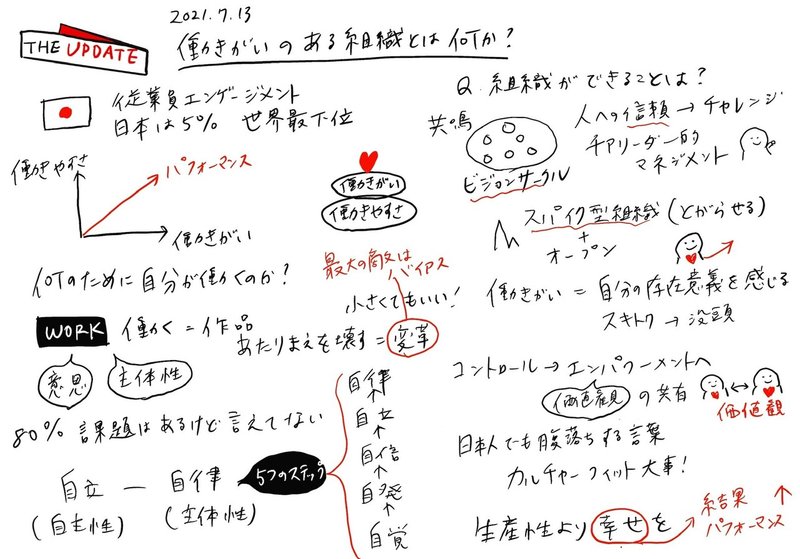 2021.7.13
THE UPDATE
働きがいのある組織とは何か?
従業員エンゲージメント
日本は5% 世界最下位
働きやすさ
パフォーマンス
働きがい
働きがい
働きやすさ
何のために自分が働くのか?
最大の敵は
バイアス
小さくてもいい!
WORK 働く=作品
あたりまえを壊す=変革
意思
主体性
80% 課題はあるけど言えてない
自立 — 自律
(自主性) (主体性)
5つのステップ
自律
自立
自信
自発
自覚
Q. 組織ができることは?
共鳴
ビジョンサークル
人への信頼→チャレンジ
チアリーダー的
マネジメント
スパイク型組織(とがらせる)
+
オープン
働きがい=自分の存在意義を感じる
スキトク→没頭
コントロール→エンパワーメントへ
価値観の共有
価値観
日本人でも腹落ちする言葉
カルチャーフィット大事!
生産性より幸せを
結果
パフォーマンス